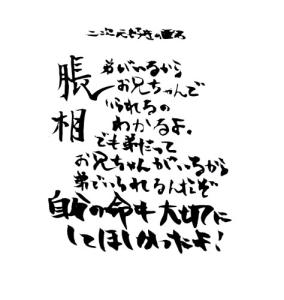 二次元好きの匿名
脹相
弟がいるから
お兄ちゃんで
いられるの
わかるよ。
でも弟だって
お兄ちゃんがいるから
弟でいられるんだぞ
自分の命も大切に
してほしかったよ!